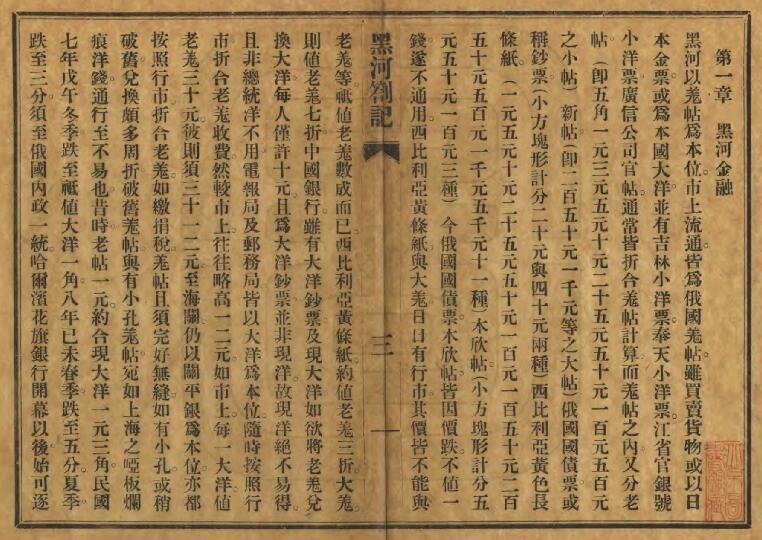 第一章　黑河金融
黑河以羗帖爲本位。市上流通。皆爲俄國羗帖。雖買賣貨物。或以日
本金票。或爲本國大洋。並有吉林小洋票。奉天小洋票。江省官銀號
小洋票。廣信公司官帖。通常皆折合羗帖計算。而羗帖之內。又分老
帖（卽五角一元三元五元十元二十五元五十元一百元五百元
之小帖）新帖（卽二百五十元一千元等之大帖）俄國國債票。或
稱鈔票（小方塊形計分二十元與四十元兩種）西比利亞黃色長
條紙（一元五元十元二十五元五十元一百元一百五十元二百
五十元五百元一千元五千元十一種）木欣帖（小方塊形計分五
元五十元一百元三種）今俄國國債票。木欣帖。皆因價跌不値一
錢。遂不通用。西比利亞黃條紙與大羗日日有行市。其價皆不能與
黑河劄記　三　一
老羗等。祇値老羗數成而已。西比利亞黃條紙。約値老羗三折。大羗
則値老羗七折。中國銀行。雖有大洋鈔票。及現大洋。如欲將老羗兌
換大洋。每人僅許十元。且爲大洋鈔票。並非現洋。故現洋絕不易得。
且非總統洋不用。電報局及郵務局。皆以大洋爲本位。隨時按照行
市。折合老羗收費。然較市上。往往略高一二元。如市上每一大洋値
老羗三十元。彼則須三十一二元。至海關。仍以關平銀爲本位。亦都
按照行市。折合老羗。如繳捐稅。羗帖且須完好無縫。如有小孔。或稍
破舊。兌換頗多周折。破舊羗帖。與有小孔羗帖。宛如上海之啞板爛
痕洋錢。通行至不易也。昔時老帖一元。約合現大洋一元三角。民國
七年戊午冬季。跌至祇値大洋一角。八年己未春季。跌至五分。夏季
跌至三分。須至俄國內政一統。哈爾濱花旗銀行開幕以後。始可逐